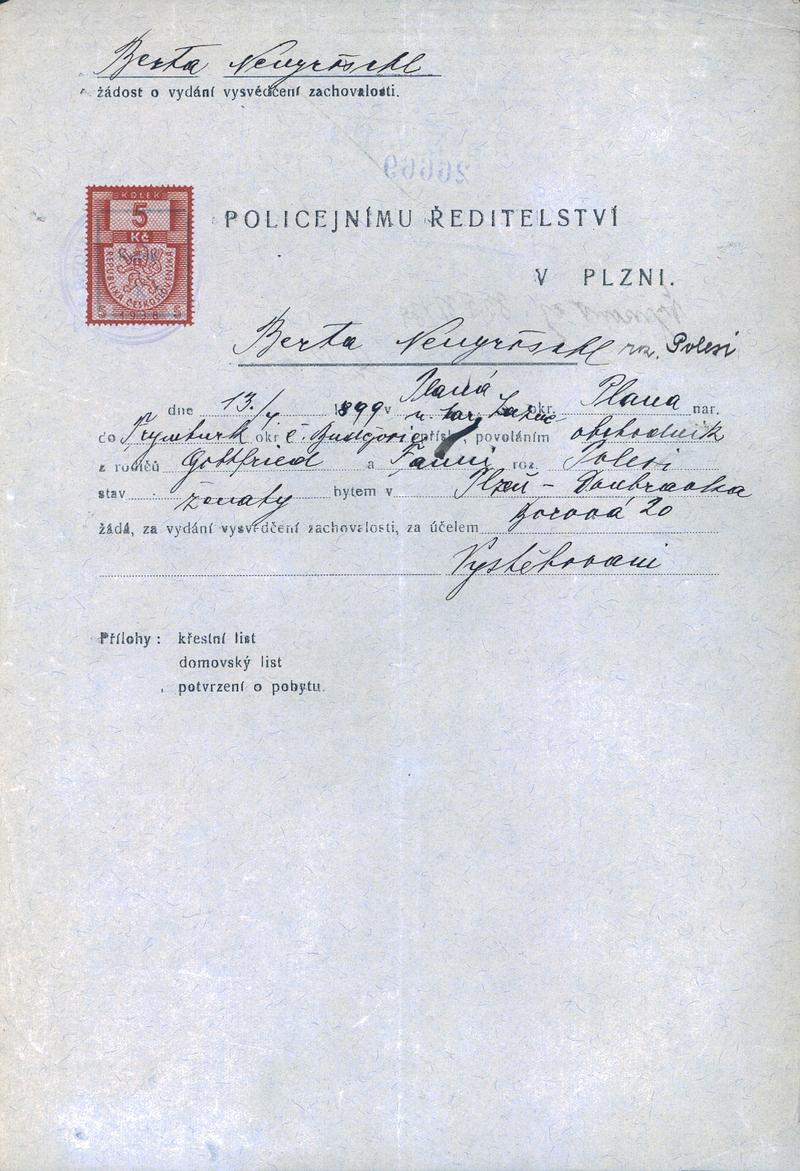 Berta Neugröschl
žádost o vydání vysvědčení zachovalosti.
26669
KOLEK
5
Kč
REPUBLIKA ČESKOSLOVENSKÁ
5 1938 5
POLICEJNÍMU ŘEDITELSTVÍ
V PLZNI.
Berta Neugröschl roz. Polesi
Planá
dne 13./4 1899 v n. Luž. okr. Plana nar.
do okr. č. Budějovice přísl., povoláním obchodník
z rodičů Gottfried a Fanni roz. Polesi
stav ženatý bytem v Plzeň - Doubravka
žádá, za vydání vysvědčení zachovalosti, za účelem Borová 20
Vystěhovani
Přílohy: křestní list
domovský list
potvrzení o pobytu.